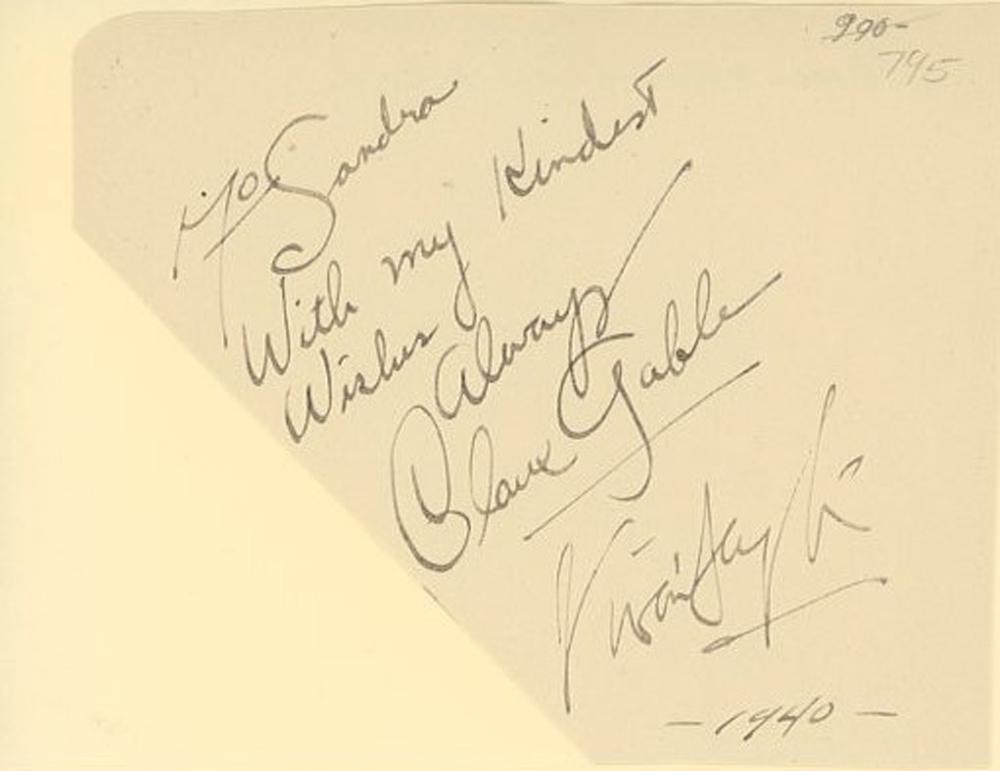 990-
795
To Sandra
With my Kindest
Wishes Always
Clark Gable
Vivien Leigh
- 1940 -